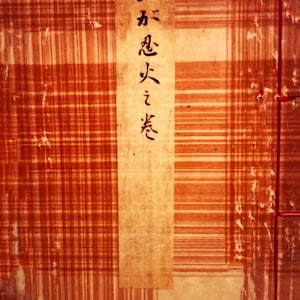 が忍火之巻